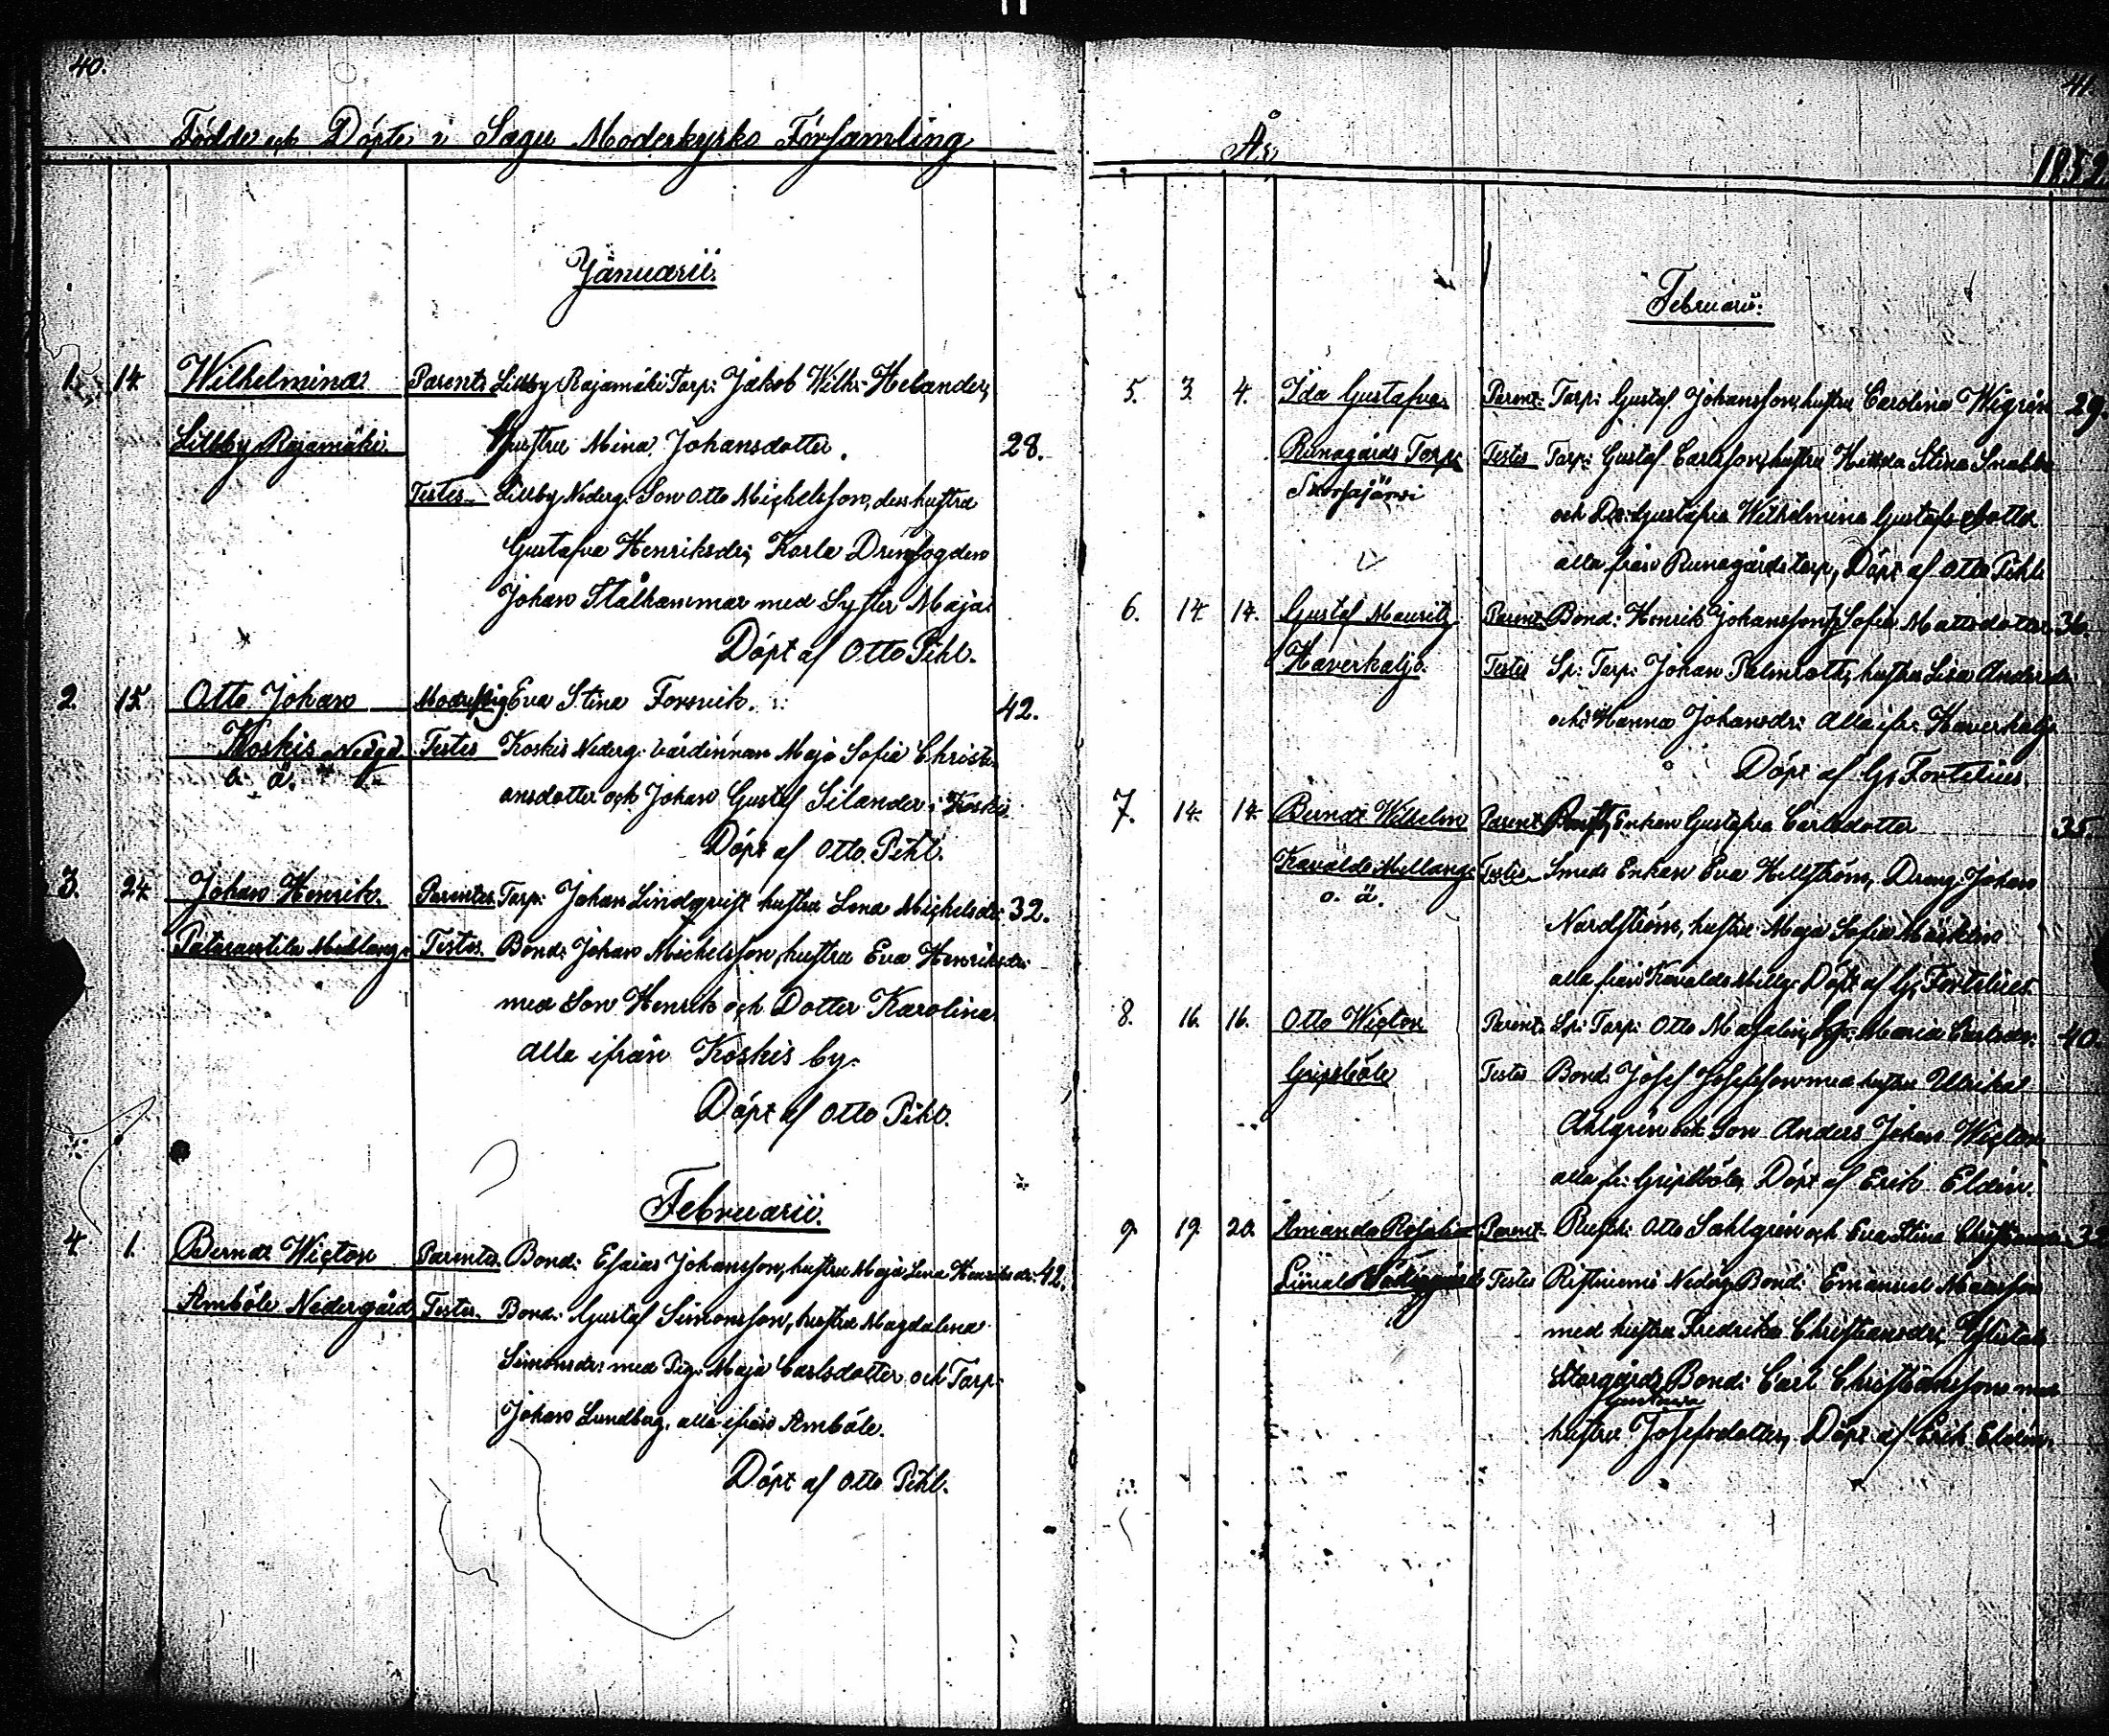 40.
Födde och Döpte i Sagu Moderkyrko Församling
Januarii.
1. 14. Wilhelmina Parents Lillby Rajamäki Torp: Jakob Wilh: Helander,
Lillby Rajamäki. hustru Mina Johansdotter. 28.
Testes Lillby Nederg: Son Otto Michelsson, dess hustru
Gustafva Henriksdr; Karla Drengfogden
Johan Stålhammar med Syster Maja.
Döpt af Otto Pihl.
2. 15. Otto Johan Moder Pig. Eva Stina Forsvik. 42.
Koskis Nedgd. Testes Koskis Nederg: värdinnan Maja Sofia Christi
o. ä. ansdotter och Johan Gustaf Silander i Koskis.
Döpt af Otto Pihl.
3. 24 Johan Henrik. Parentes Torp: Johan Lindqvist hustru Lena Michelsdr: 32.
Mellang: Testes. Bond: Johan Michelsson, hustru Eva Henriksdr:
med Son Henrik och Dotter Karolina.
alla ifrån Koskis by.
Döpt af Otto Pihl.
Februarii.
4. 1. Berndt Wictor Parentes. Bond: Esaias Johansson, hustru Maja Lena Henriksdr: 42.
Amböle Nedergård Testes. Bond: Gustaf Simonsson, hustru Magdalena
Simonsdr: med Pig: Maja Carlsdotter och Torp:
Johan Lundberg, alla ifrån Amböle.
Döpt af Otto Pihl.
41.
År 1859.
Februarii.
5. 3. 4. Ida Gustafva Parent: Torp: Gustaf Johansson, hustru Carolina Wigrén 29.
Runagårds Torp: Testes Torp: Gustaf Carlsson, hustru Stina Snabba
och Gustafva Wilhelmina Gustafsdotter
alla från Runagårds torp, Döpt af Otto Pihl
6. 14. 14. Gustaf Mauritz Parent Bond: Henrik Johansson, Sofia Mattsdotter 36.
Haverkaljo. Testes Sp: Torp: Johan Palmroth, hustru Lisa Andersdr:
och Hanna Johansdr: alla ifr: Haverkaljo
Döpt af G. Fortelius.
7. 14. 14. Berndt Wilhelm Parent Enkan Gustafva Carlsdotter 35.
Kavalds Mellang: Testes Smeds Enkan Eva Hellström, Dreng: Johan
o. ä. Nordström, hustru Maja Sofia
alla från Kavalds Mellg: Döpt af G. Fortelius.
8. 16. 16. Otto Wictor Parent Sp: Torp: Otto Maria Carlsdr: 40.
Gripsböle Testes Bond: Josef Josefsson med hustru Ulrika
Ahlgrén och Son Anders Johan Wictor
alla fr: Gripsböle, Döpt af Erik Eldén.
9. 19. 20. Amanda Rosalia Parent Otto Sahlgrén och Eva Stina
Testes Ristniemi Nederg: Bond: Emanuel
med hustru Fredrika Christiansdr;
Storgårds Bond: Carl Christiansson med
Gustava
hustru Josefsdotter, Döpt af Erik Eldén.